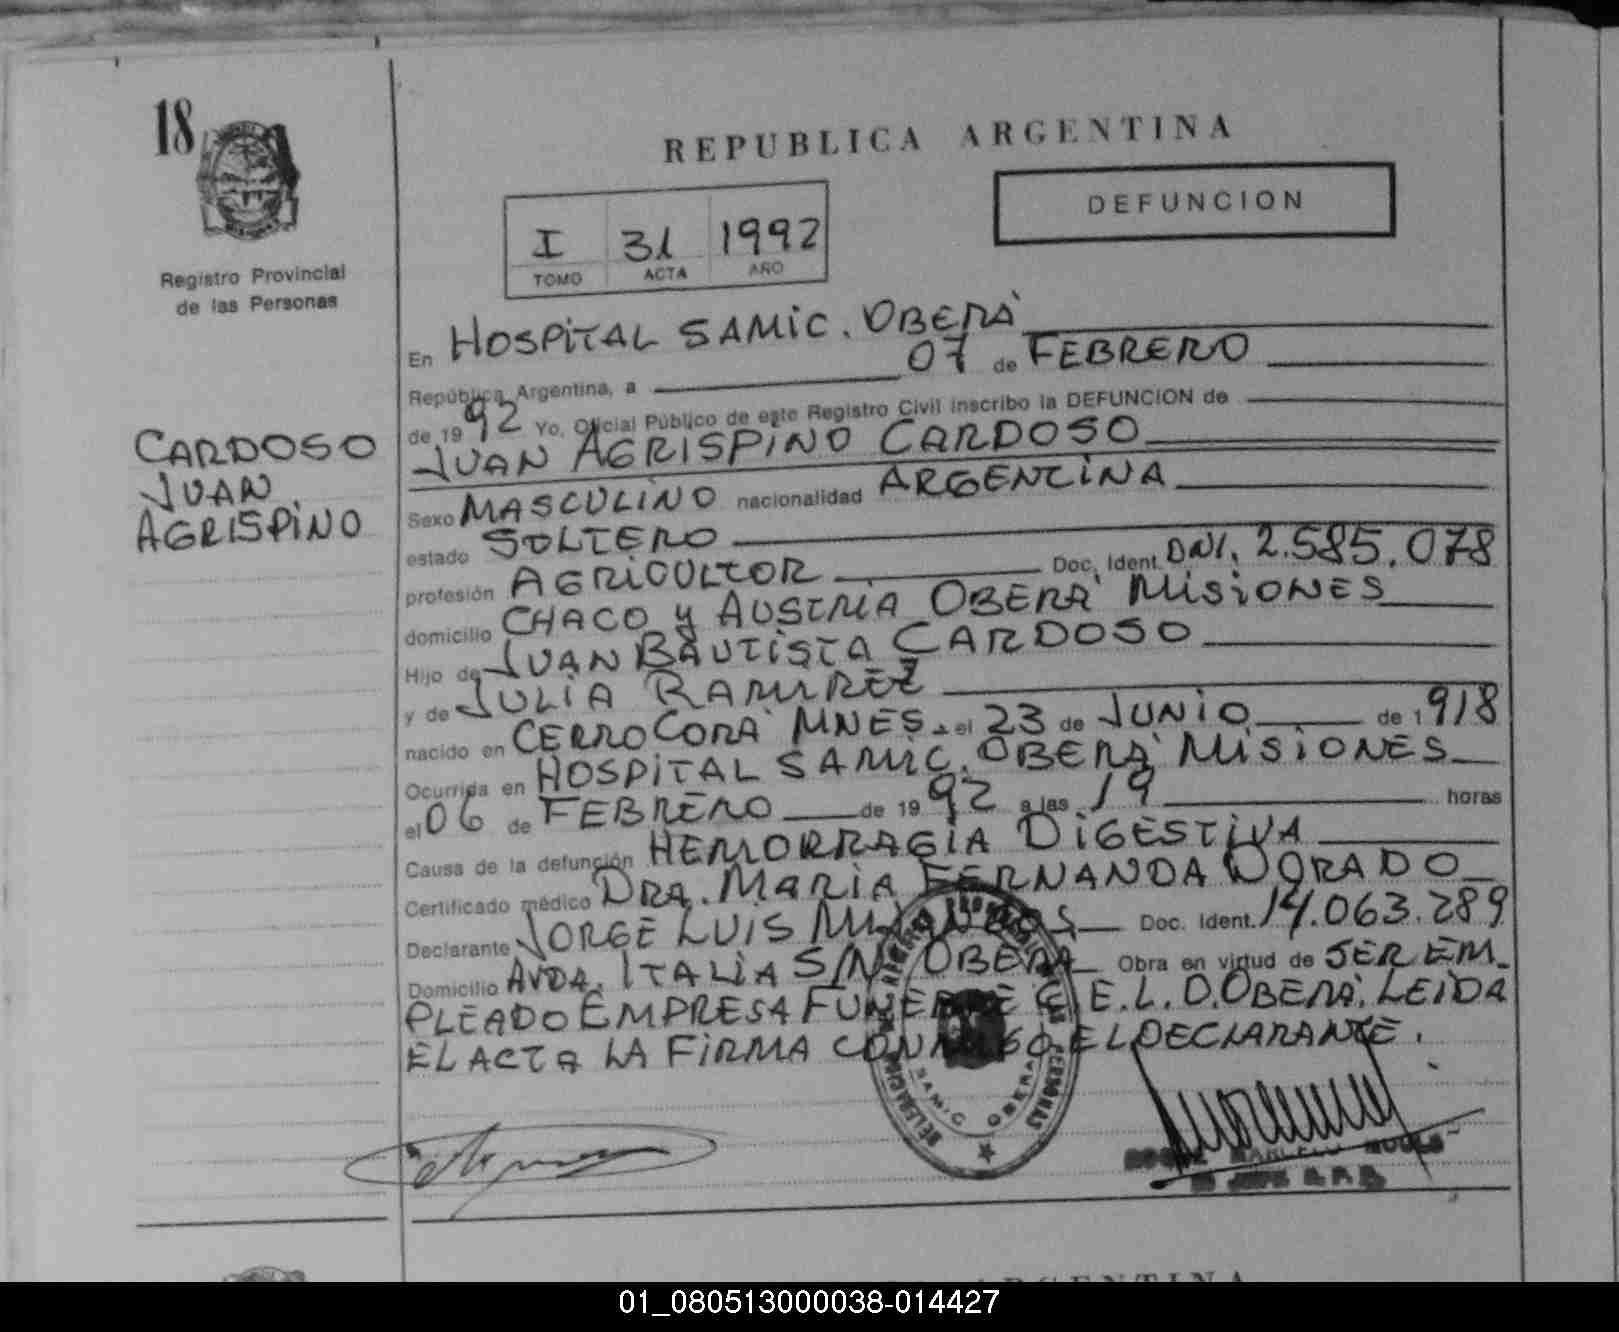 18
REPUBLICA ARGENTINA
DEFUNCION
I 31 1992
TOMO ACTA AÑO
Registro Provincial
de las Personas
CARDOSO
JUAN
AGRISPINO
En HOSPITAL SAMIC. OBERÁ
República Argentina, a 07 de FEBRERO
de 1992 Yo, Oficial Público de este Registro Civil inscribo la DEFUNCION de
JUAN AGRISPINO CARDOSO
Sexo MASCULINO nacionalidad ARGENTINA
estado SOLTERO
profesión AGRICULTOR Doc. Ident. DNI. 2.585.078
domicilio CHACO y AUSTRIA OBERÁ MISIONES
Hijo de JUAN BAUTISTA CARDOSO
y de JULIA RAMIREZ
nacido en CERRO CORÁ MNES. el 23 de JUNIO de 1918
Ocurrida en HOSPITAL SAMIC. OBERÁ MISIONES
el 06 de FEBRERO de 1992 a las 19 horas
Causa de la defunción HEMORRAGIA DIGESTIVA
Certificado médico DRA. MARIA FERNANDA DORADO
Declarante JORGE LUIS Doc. Ident. 14.063.289
Domicilio AVDA. ITALIA S/N OBERÁ Obra en virtud de SER EM-
PLEADO EMPRESA FUNEBRE C.E.L.O. OBERÁ. LEIDA
EL ACTA LA FIRMA CONMIGO EL DECLARANTE.
SAMIC OBERA
PERSONAS
MARCELO
ARGENTINA
01_080513000038-014427